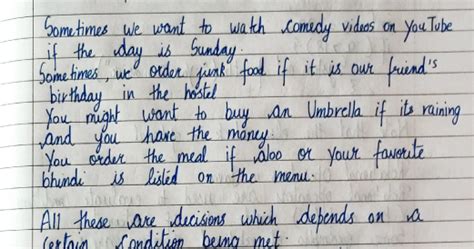 Sometimes we want to watch comedy videos on YouTube
if the day is Sunday.
Sometimes, we order junk food if it is our friend's
birthday in the hostel
You might want to buy an Umbrella if its raining
and you have the money.
You order the meal if aloo or your favorite
bhindi is listed on the menu.
All these are decisions which depends on a
certain condition being met.